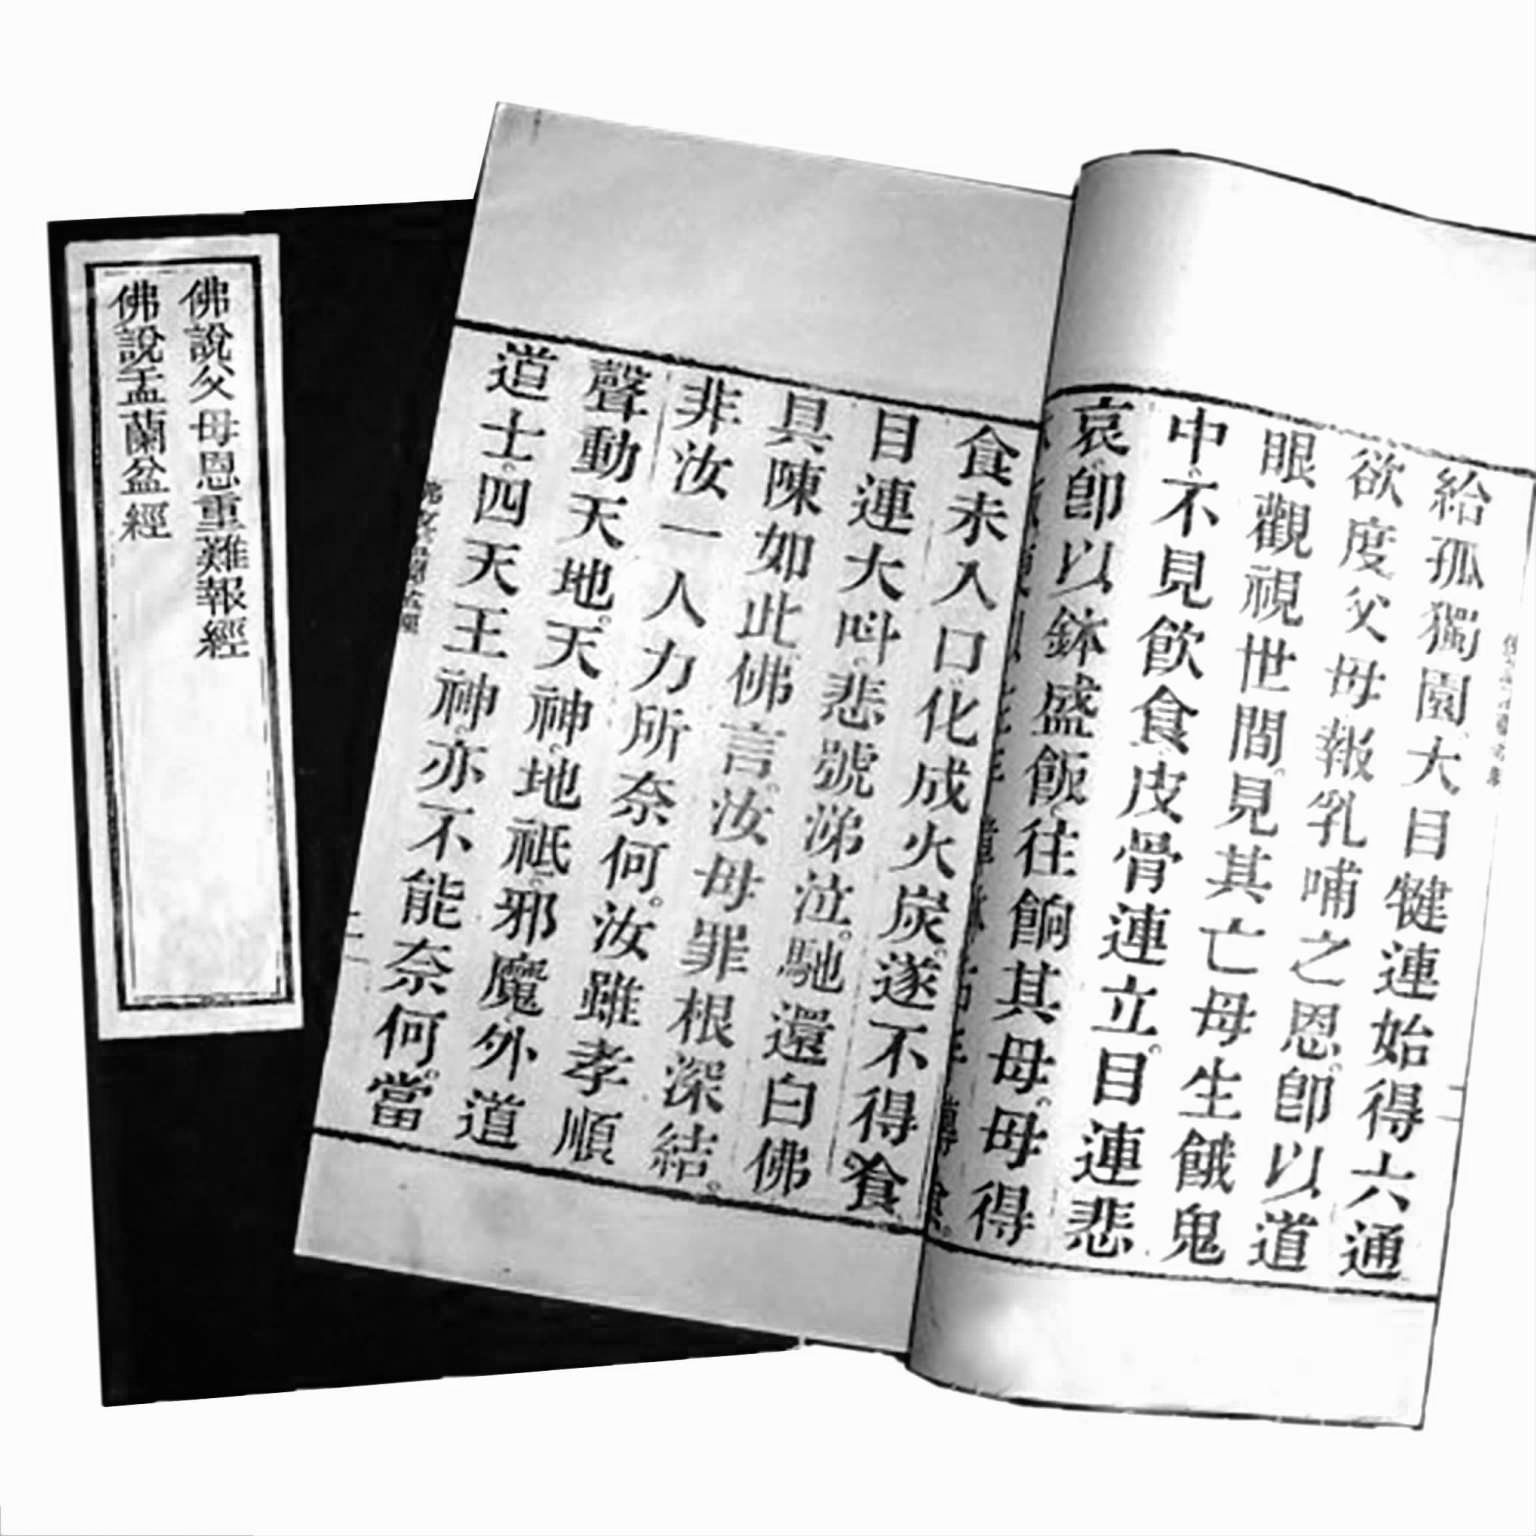 佛說父母恩重難報經
佛說盂蘭盆經
給孤獨園、大目犍連始得六通
欲度父母報乳哺之恩。卽以道
眼觀視世間。見其亡母生餓鬼
中。不見飲食皮骨連立。目連悲
哀。卽以鉢盛飯。往餉其母。母得
食未入口。化成火炭。遂不得食。
目連大呌。悲號涕泣。馳還白佛
具陳如此佛言。汝母罪根深結。
非汝一人力所奈何。汝雖孝順
聲動天地。天神。地祇。邪魔外道
道士。四天王神。亦不能奈何。當